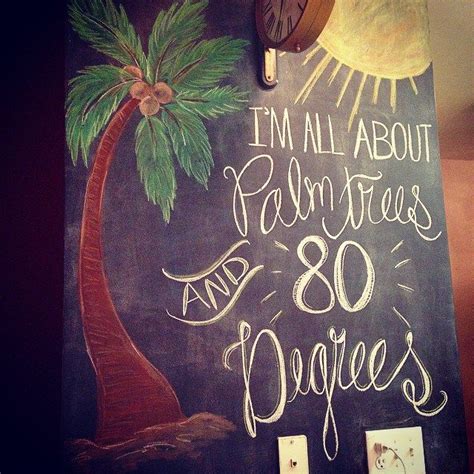 I'M ALL ABOUT
Palm trees
AND 80
Degrees